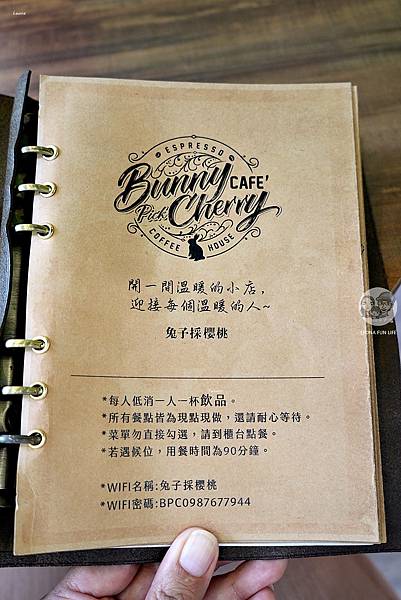 Leona
ESPRESSO
Bunny CAFE'
Pick Cherry
COFFEE HOUSE
開一間溫暖的小店,
迎接每個溫暖的人~
兔子採櫻桃
*每人低消一人一杯飲品。
*所有餐點皆為現點現做，還請耐心等待。
*菜單勿直接勾選，請到櫃台點餐。
*若遇候位，用餐時間為90分鐘。
*WIFI名稱:兔子採櫻桃
*WIFI密碼:BPC0987677944
LEONA FUN LIFE